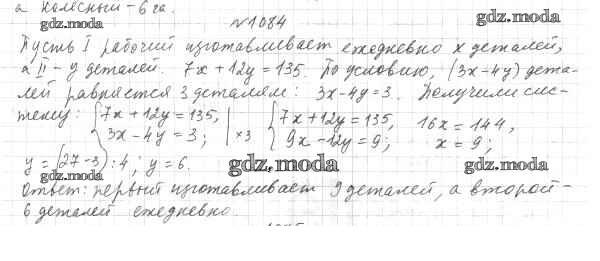 а колёсный - 6 га.
gdz.moda
№1084
gdz.moda
Пусть I рабочий изготавливает ежедневно x деталей,
а II - y деталей. 7x + 12y = 135. По условию, (3x - 4y) дета-
лей равняется 3 деталям: 3x - 4y = 3. Получили сис-
тему: { 7x + 12y = 135, 3x - 4y = 3; | ×3 { 7x + 12y = 135, 9x - 12y = 9; 16x = 144, x = 9;
y = (27 - 3) : 4; y = 6.
gdz.moda
gdz.moda
gdz.moda
Ответ: первый изготавливает 9 деталей, а второй -
6 деталей ежедневно.